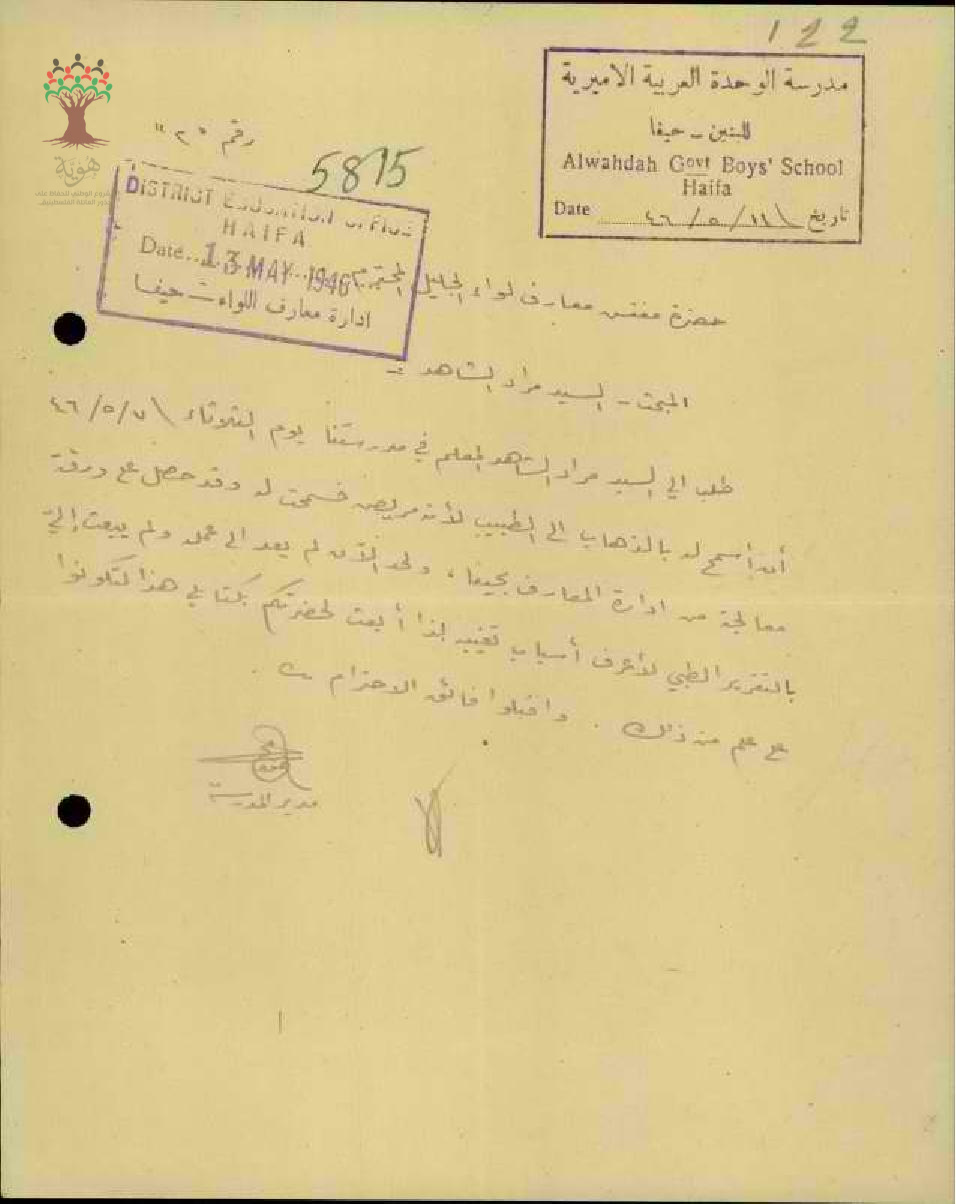 122
مدرسة الوحدة العربية الاميرية
للبنين - حيفا
Alwahdah Govt Boys' School
Haifa
Date تاريخ ١١/٥/٤٦
هوية
رقم "٢"
5815
DISTRICT EDUCATION OFFICE
HAIFA
Date 13 MAY 1946
ادارة معارف اللواء - حيفا
حضرة مفتش معارف لواء الجليل المحترم
المبحث - السيد مراد الشاهد :-
طلب الي السيد مراد الشاهد المعلم في مدرستنا يوم الثلاثاء ٧/٥/٤٦
أن أسمح له بالذهاب الى الطبيب لأنه مريض فسمحت له وقد حصل على ورقة
معالجة من ادارة المعارف بحيفا ، ولحد الآن لم يعد الى عمله ولم يبعث إليّ
بالتقرير الطبي لأعرف أسباب تغيبه لذا أبعث لحضرتكم بكتابي هذا لتكونوا
على علم من ذلك . واقبلوا فائق الاحترام .
مدير المدرسة